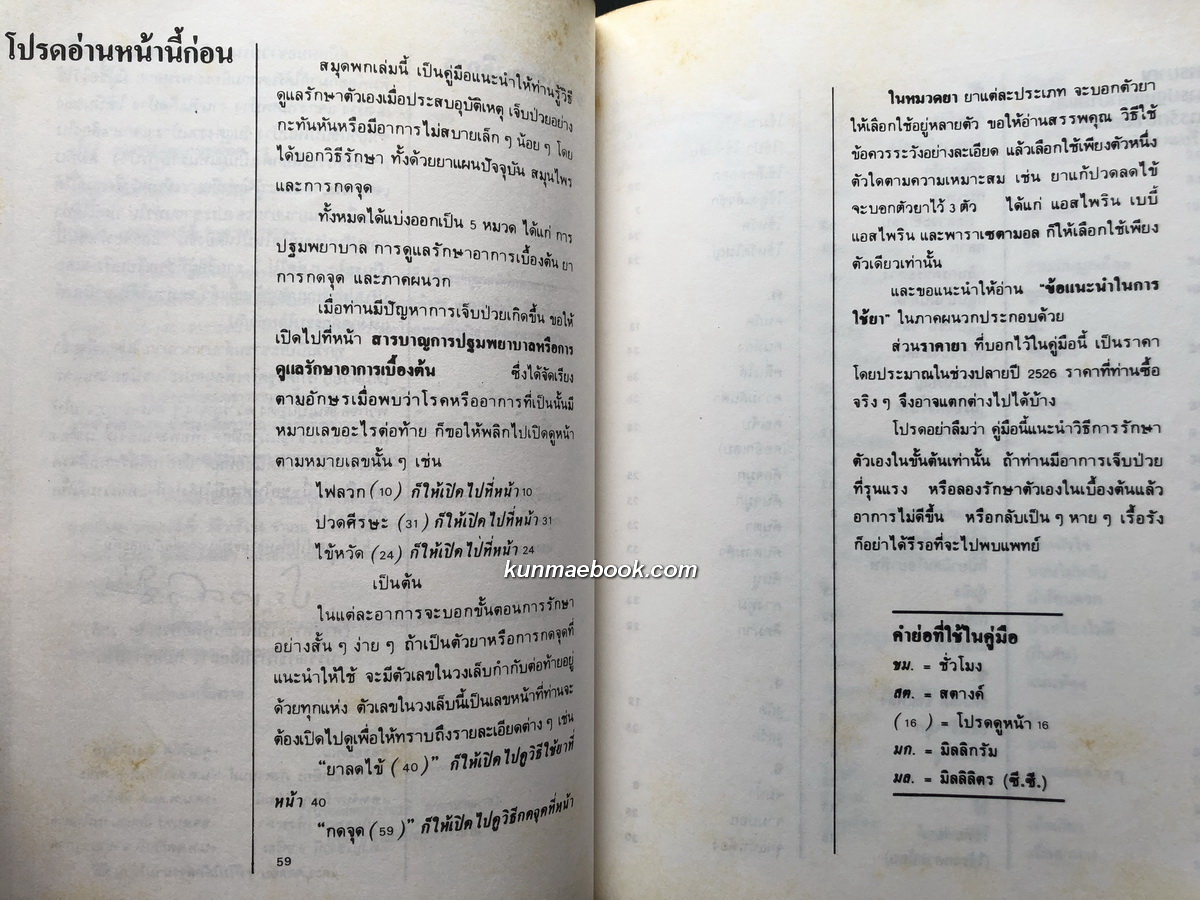 โปรดอ่านหน้านี้ก่อน
สมุดพกเล่มนี้ เป็นคู่มือแนะนำให้ท่านรู้วิธี
ดูแลรักษาตัวเองเมื่อประสบอุบัติเหตุ เจ็บป่วยอย่าง
กะทันหันหรือมีอาการไม่สบายเล็ก ๆ น้อย ๆ โดย
ได้บอกวิธีรักษา ทั้งด้วยยาแผนปัจจุบัน สมุนไพร
และการกดจุด
ทั้งหมดได้แบ่งออกเป็น 5 หมวด ได้แก่ การ
ปฐมพยาบาล การดูแลรักษาอาการเบื้องต้น ยา
การกดจุด และภาคผนวก
เมื่อท่านมีปัญหาการเจ็บป่วยเกิดขึ้น ขอให้
เปิดไปที่หน้า สารบาญการปฐมพยาบาลหรือการ
ดูแลรักษาอาการเบื้องต้น ซึ่งได้จัดเรียง
ตามอักษรเมื่อพบว่าโรคหรืออาการที่เป็นนั้นมี
หมายเลขอะไรต่อท้าย ก็ขอให้พลิกไปเปิดดูหน้า
ตามหมายเลขนั้น ๆ เช่น
ไฟลวก (10) ก็ให้เปิดไปที่หน้า 10
ปวดศีรษะ (31) ก็ให้เปิดไปที่หน้า 31
ไข้หวัด (24) ก็ให้เปิดไปที่หน้า 24
เป็นต้น
ในแต่ละอาการจะบอกขั้นตอนการรักษา
อย่างสั้น ๆ ง่าย ๆ ถ้าเป็นตัวยาหรือการกดจุดที่
แนะนำให้ใช้ จะมีตัวเลขในวงเล็บกำกับต่อท้ายอยู่
ด้วยทุกแห่ง ตัวเลขในวงเล็บนี้เป็นเลขหน้าที่ท่านจะ
ต้องเปิดไปดูเพื่อให้ทราบถึงรายละเอียดต่าง ๆ เช่น
"ยาลดไข้ (40)" ก็ให้เปิดไปดูวิธีใช้ยาที่
หน้า 40
"กดจุด (59)" ก็ให้เปิดไปดูวิธีกดจุดที่หน้า
59
ในหมวดยา ยาแต่ละประเภท จะบอกตัวยา
ให้เลือกใช้อยู่หลายตัว ขอให้อ่านสรรพคุณ วิธีใช้
ข้อควรระวังอย่างละเอียด แล้วเลือกใช้เพียงตัวหนึ่ง
ตัวใดตามความเหมาะสม เช่น ยาแก้ปวดลดไข้
จะบอกตัวยาไว้ 3 ตัว ได้แก่ แอสไพริน เบบี้
แอสไพริน และพาราเซตามอล ก็ให้เลือกใช้เพียง
ตัวเดียวเท่านั้น
และขอแนะนำให้อ่าน "ข้อแนะนำในการ
ใช้ยา" ในภาคผนวกประกอบด้วย
ส่วนราคายา ที่บอกไว้ในคู่มือนี้ เป็นราคา
โดยประมาณในช่วงปลายปี 2526 ราคาที่ท่านซื้อ
จริง ๆ จึงอาจแตกต่างไปได้บ้าง
โปรดอย่าลืมว่า คู่มือนี้แนะนำวิธีการรักษา
ตัวเองในขั้นต้นเท่านั้น ถ้าท่านมีอาการเจ็บป่วย
ที่รุนแรง หรือลองรักษาตัวเองในเบื้องต้นแล้ว
อาการไม่ดีขึ้น หรือกลับเป็น ๆ หาย ๆ เรื้อรัง
ก็อย่าได้รีรอที่จะไปพบแพทย์
คำย่อที่ใช้ในคู่มือ
ชม. = ชั่วโมง
สต. = สตางค์
(16) = โปรดดูหน้า 16
มก. = มิลลิกรัม
มล. = มิลลิลิตร (ซี.ซี.)
kunmaebook.com